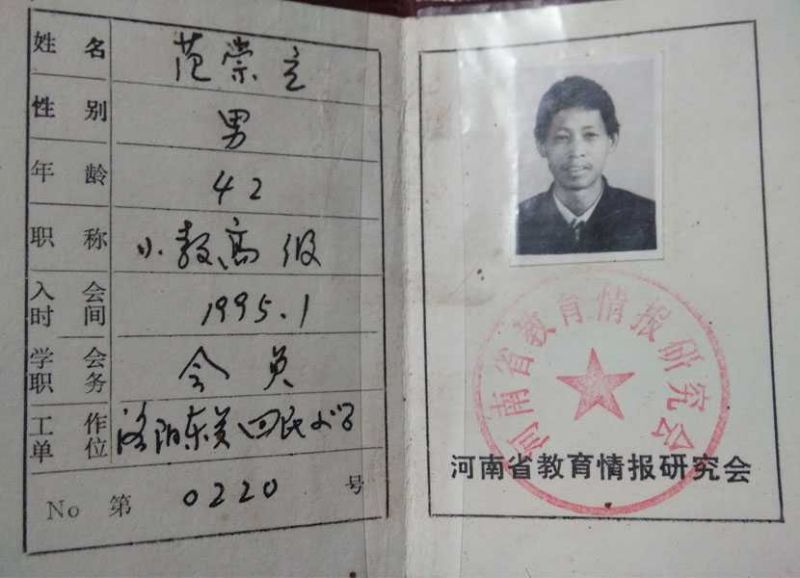 姓名 范崇立
性别 男
年龄 42
职称 小教高级
入会时间 1995.1
学会职务 会员
工作单位 洛阳东关回民小学
No 第 0220 号
河南省教育情报研究会
河南省教育情报研究会